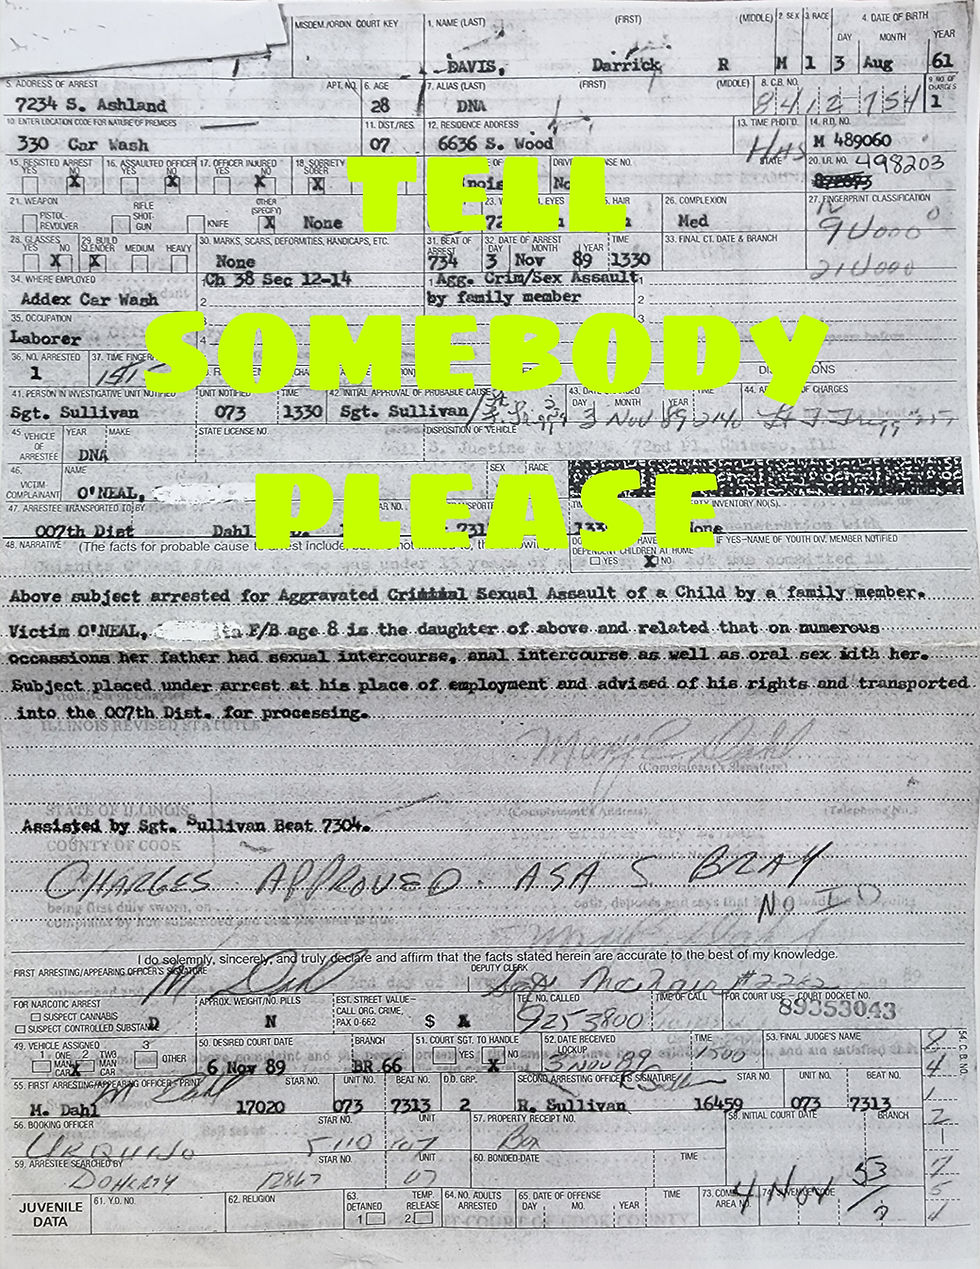 MISDEM./ORDIN. COURT KEY 1. NAME (LAST) (FIRST) (MIDDLE) 2. SEX 3. RACE 4. DATE OF BIRTH
DAY MONTH YEAR
DAVIS, Darrick R M 1 3 Aug 61
5. ADDRESS OF ARREST APT. NO. 6. AGE 7. ALIAS (LAST) (FIRST) (MIDDLE) 8. C.B. NO. 9. NO. OF CHARGES
7234 S. Ashland 28 DNA 8412754 1
10. ENTER LOCATION CODE FOR NATURE OF PREMISES 11. DIST./RES. 12. RESIDENCE ADDRESS 13. TIME PHOT'D. 14. R.D. NO.
330 Car Wash 07 6636 S. Wood M 489060
15. RESISTED ARREST 16. ASSAULTED OFFICER 17. OFFICER INJURED 18. SOBRIETY STATE 20. I.R. NO. 498203
YES NO YES NO YES NO SOBER
X X X X
TELL
21. WEAPON 26. COMPLEXION 27. FINGERPRINT CLASSIFICATION
PISTOL- REVOLVER RIFLE SHOT-GUN KNIFE OTHER (SPECIFY) X None Med
28. GLASSES 29. BUILD 30. MARKS, SCARS, DEFORMITIES, HANDICAPS, ETC. 31. BEAT OF ARREST 32. DATE OF ARREST TIME 33. FINAL CT. DATE & BRANCH
YES NO SLENDER MEDIUM HEAVY DAY MONTH YEAR
X X None 734 3 Nov 89 1330
34. WHERE EMPLOYED Ch 38 Sec 12-14 1 Agg. Crim/Sex Assault 1
Addex Car Wash 2 by family member 2
35. OCCUPATION 3 3
Laborer 4
SOMEBODY
36. NO. ARRESTED 37. TIME FINGER
1
41. PERSON IN INVESTIGATIVE UNIT NOTIFIED UNIT NOTIFIED TIME 42. INITIAL APPROVAL OF PROBABLE CAUSE 43. DAY MONTH YEAR TIME 44. OF CHARGES
Sgt. Sullivan 073 1330 Sgt. Sullivan 3 Nov 89 2140
45. VEHICLE OF ARRESTEE YEAR MAKE STATE LICENSE NO. DISPOSITION OF VEHICLE
DNA
46. VICTIM-COMPLAINANT NAME SEX RACE
O'NEAL,
PLEASE
47. ARREST TRANSPORTED TO BY
007th Dist Dahl
48. NARRATIVE (The facts for probable cause to arrest include, DEPENDENT CHILDREN AT HOME IF YES-NAME OF YOUTH DIV. MEMBER NOTIFIED
YES X NO
Above subject arrested for Aggravated Criminal Sexual Assault of a Child by a family member.
Victim O'NEAL, F/B age 8 is the daughter of above and related that on numerous
occassions her father had sexual intercourse, anal intercourse as well as oral sex with her.
Subject placed under arrest at his place of employment and advised of his rights and transported
into the 007th Dist. for processing.
ILLINOIS REVISED STATUTES
(Complainant's Signature)
STATE OF ILLINOIS (Complainant's Address) Telephone No.
Assisted by Sgt. Sullivan Beat 7304.
COUNTY OF COOK
CHARGES APPROVED. ASA S BRAY
No ID
I do solemnly, sincerely, and truly declare and affirm that the facts stated herein are accurate to the best of my knowledge.
FIRST ARRESTING/APPEARING OFFICER'S SIGNATURE DEPUTY CLERK
M Dahl
FOR NARCOTIC ARREST APPROX. WEIGHT/NO. PILLS EST. STREET VALUE- CALL ORG. CRIME, PAX 0-662 TEL. NO. CALLED TIME OF CALL FOR COURT USE - COURT DOCKET NO.
SUSPECT CANNABIS
SUSPECT CONTROLLED SUBSTANCE D N $ A 9253800 89353043
49. VEHICLE ASSIGNED 50. DESIRED COURT DATE BRANCH 51. COURT SGT. TO HANDLE 52. DATE RECEIVED LOCKUP TIME 53. FINAL JUDGE'S NAME 54. C.B. NO.
1 ONE MAN CAR 2 TWO MAN CAR 3 OTHER YES NO
X 6 Nov 89 BR 66 X 3 NOV 89 1500
55. FIRST ARRESTING/APPEARING OFFICER - PRINT STAR NO. UNIT NO. BEAT NO. D.D. GRP. SECOND ARRESTING OFFICER'S SIGNATURE STAR NO. UNIT NO. BEAT NO.
M. Dahl 17020 073 7313 2 R. Sullivan 16459 073 7313
56. BOOKING OFFICER STAR NO. UNIT 57. PROPERTY RECEIPT NO. 58. INITIAL COURT DATE BRANCH
URQUIJO
59. ARRESTEE SEARCHED BY STAR NO. UNIT 60. BONDED-DATE TIME
DOHERTY 12867 07 4 Nov
JUVENILE DATA 61. Y.D. NO. 62. RELIGION 63. DETAINED 1 TEMP. RELEASE 2 64. NO. ADULTS ARRESTED 65. DATE OF OFFENSE DAY MO. YEAR TIME